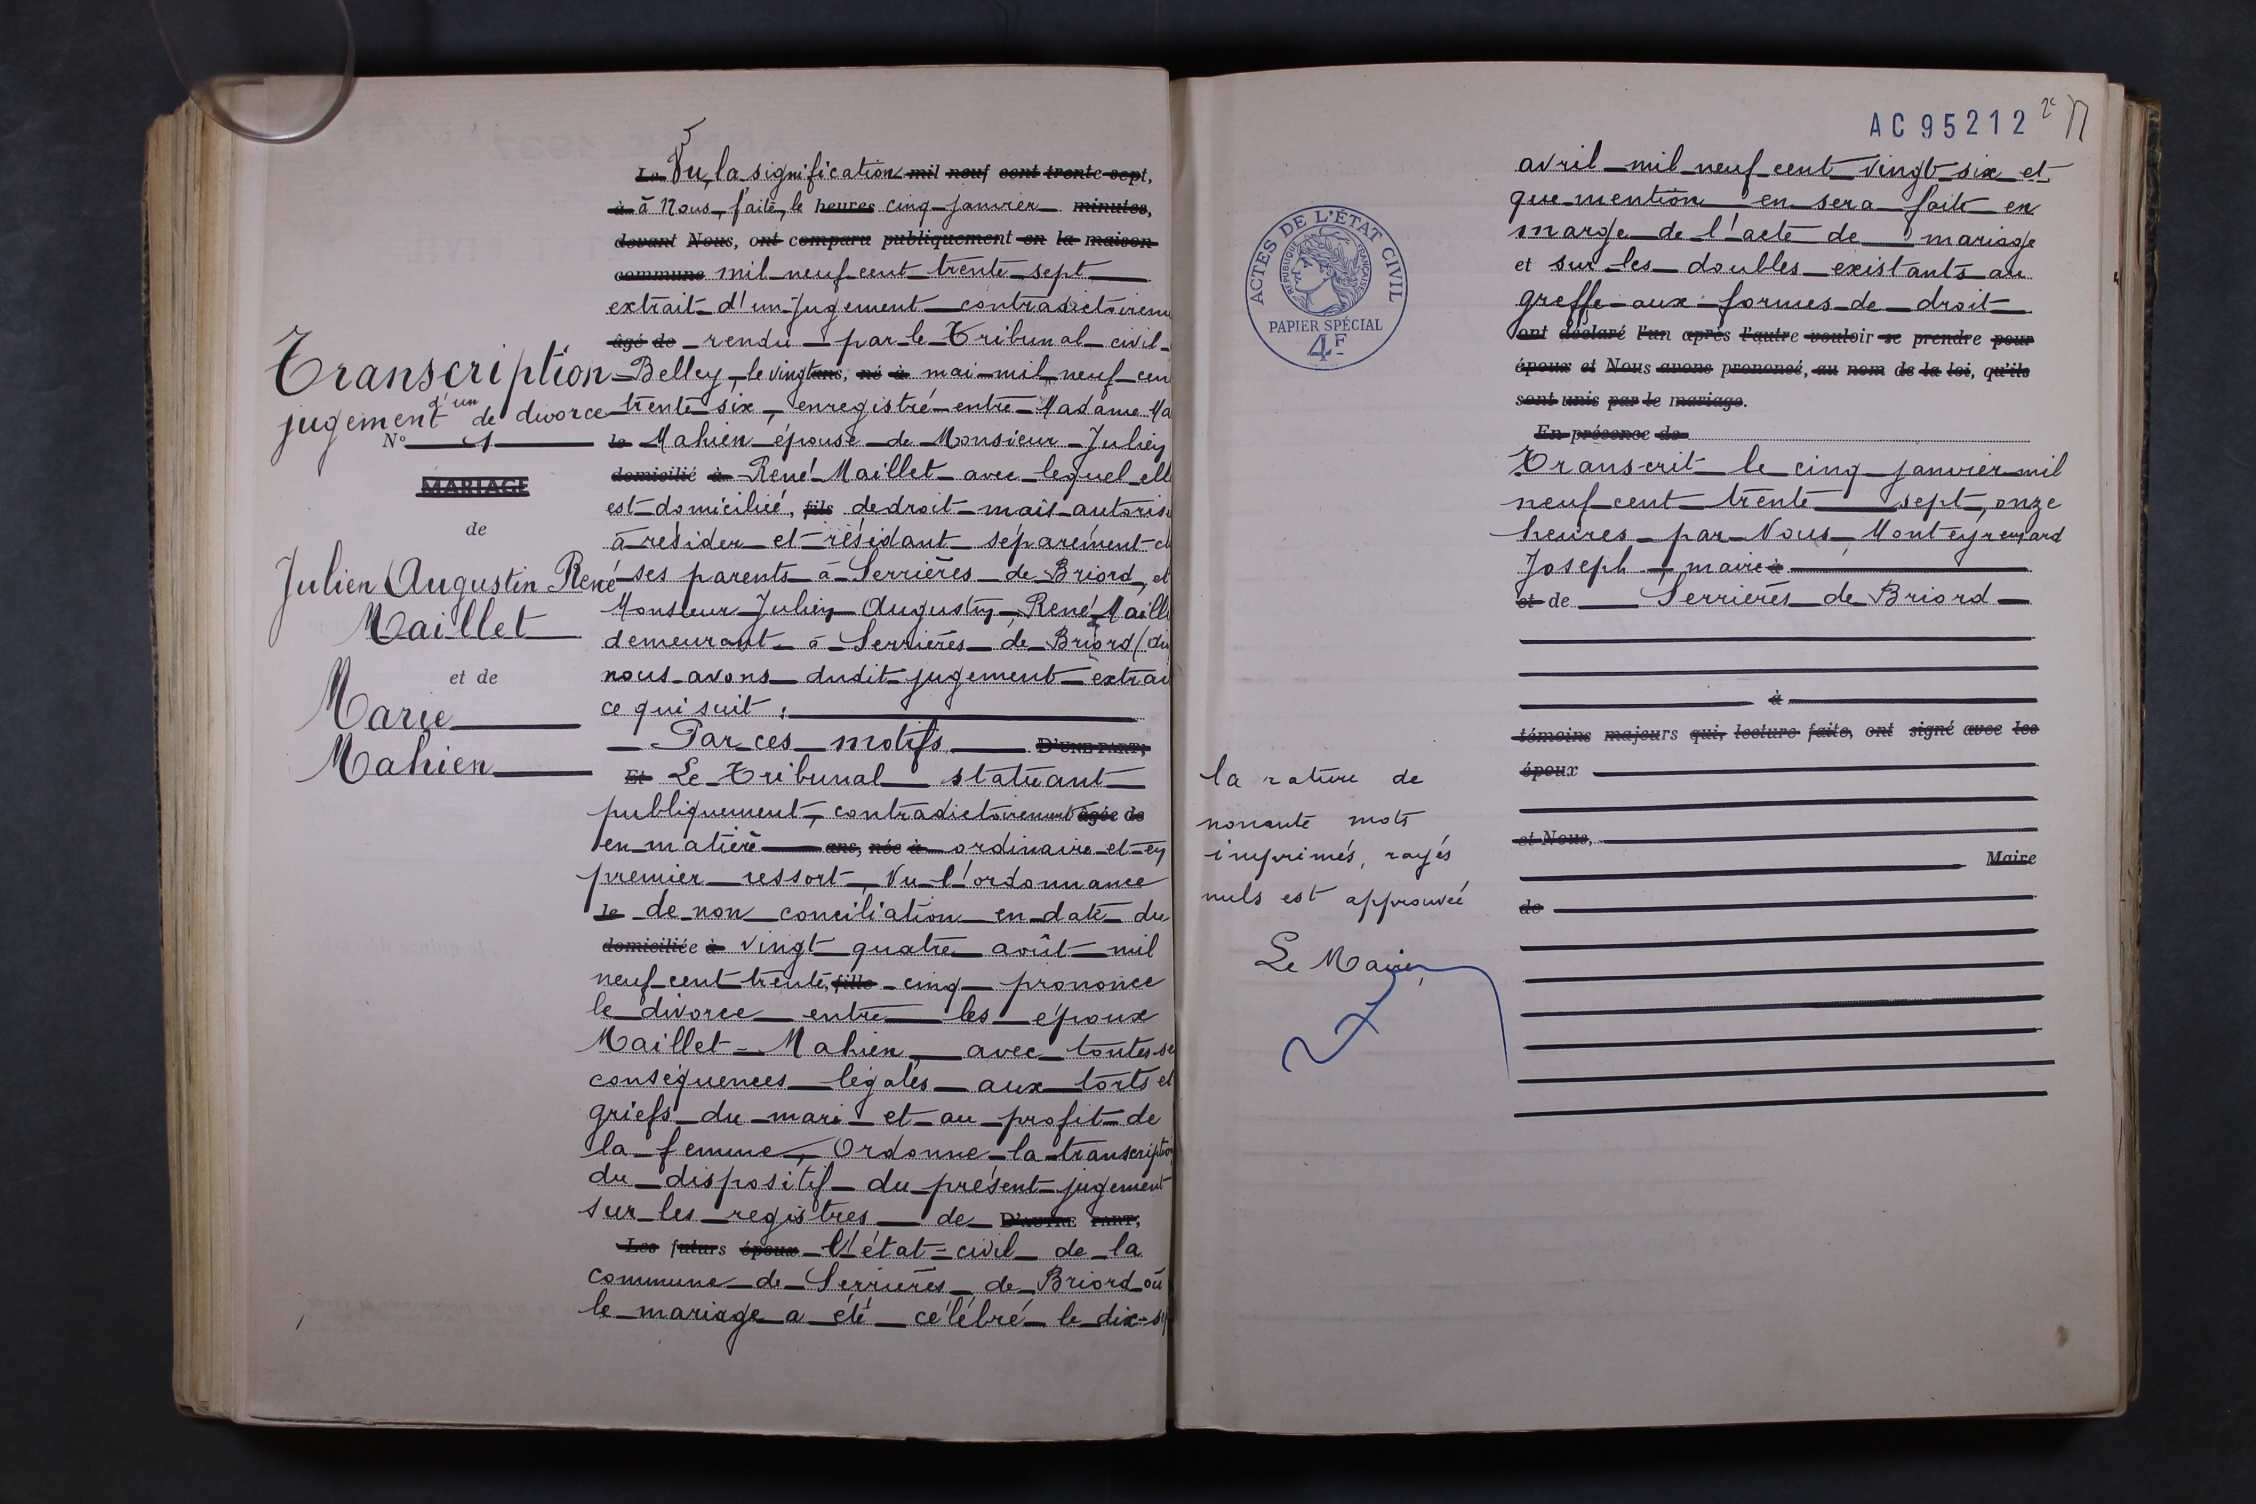 Transcription
d'un
jugement de divorce
N° 1
MARIAGE
de
Julien Augustin René
Maillet
et de
Marie
Mahien
Le Vu, la signification mil neuf cent trente-sept,
à à Nous, faite, le heures cinq janvier minutes,
devant Nous, ont comparu publiquement en la maison
commune mil neuf cent trente sept
extrait d'un jugement contradictoirem
âgé de rendu par le Tribunal civil
Belley, le vingt ans, né à mai mil neuf cen
trente six, enregistré entre Madame Ma
le Mahien épouse de Monsieur Julien
domicilié à René Maillet avec lequel elle
est domiciliée, fils de droit mais autoris
à résider et résidant séparément c
ses parents à Serrières de Briord, et
Monsieur Julien Augustin René Maill
demeurant à Serrières de Briord (
nous avons dudit jugement extrai
ce qui suit :
Par ces motifs D'UNE PART;
Et Le Tribunal statuant
publiquement, contradictoirement âgée de
en matière ans, née à ordinaire et en
premier ressort, Vu l'ordonnance
le de non conciliation en date du
domiciliée à vingt quatre août mil
neuf cent trente, fille cinq prononce
le divorce entre les époux
Maillet - Mahien, avec toutes se
conséquences légales aux torts et
griefs du mari et au profit de
la femme, Ordonne la transcription
du dispositif du présent jugement
sur les registres de D'AUTRE PART,
Les futurs époux l'état-civil de la
commune de Serrières de Briord où
le mariage a été célébré le dix-s
AC 95212
ACTES DE L'ÉTAT CIVIL
RÉPUBLIQUE FRANÇAISE
PAPIER SPÉCIAL
4F
avril mil neuf cent vingt-six et
que mention en sera faite en
marge de l'acte de mariage
et sur les doubles existants au
greffe aux formes de droit
ont déclaré l'un après l'autre vouloir se prendre pour
époux et Nous avons prononcé, au nom de la loi, qu'ils
sont unis par le mariage.
En présence de
Transcrit le cinq janvier mil
neuf cent trente sept, onze
heures par Nous Monteyremard
Joseph maire à
et de Serrières de Briord
à
témoins majeurs qui, lecture faite, ont signé avec les
époux
et Nous,
Maire
de
la rature de
nonante mots
imprimés, rayés
nuls est approuvée
Le Maire,